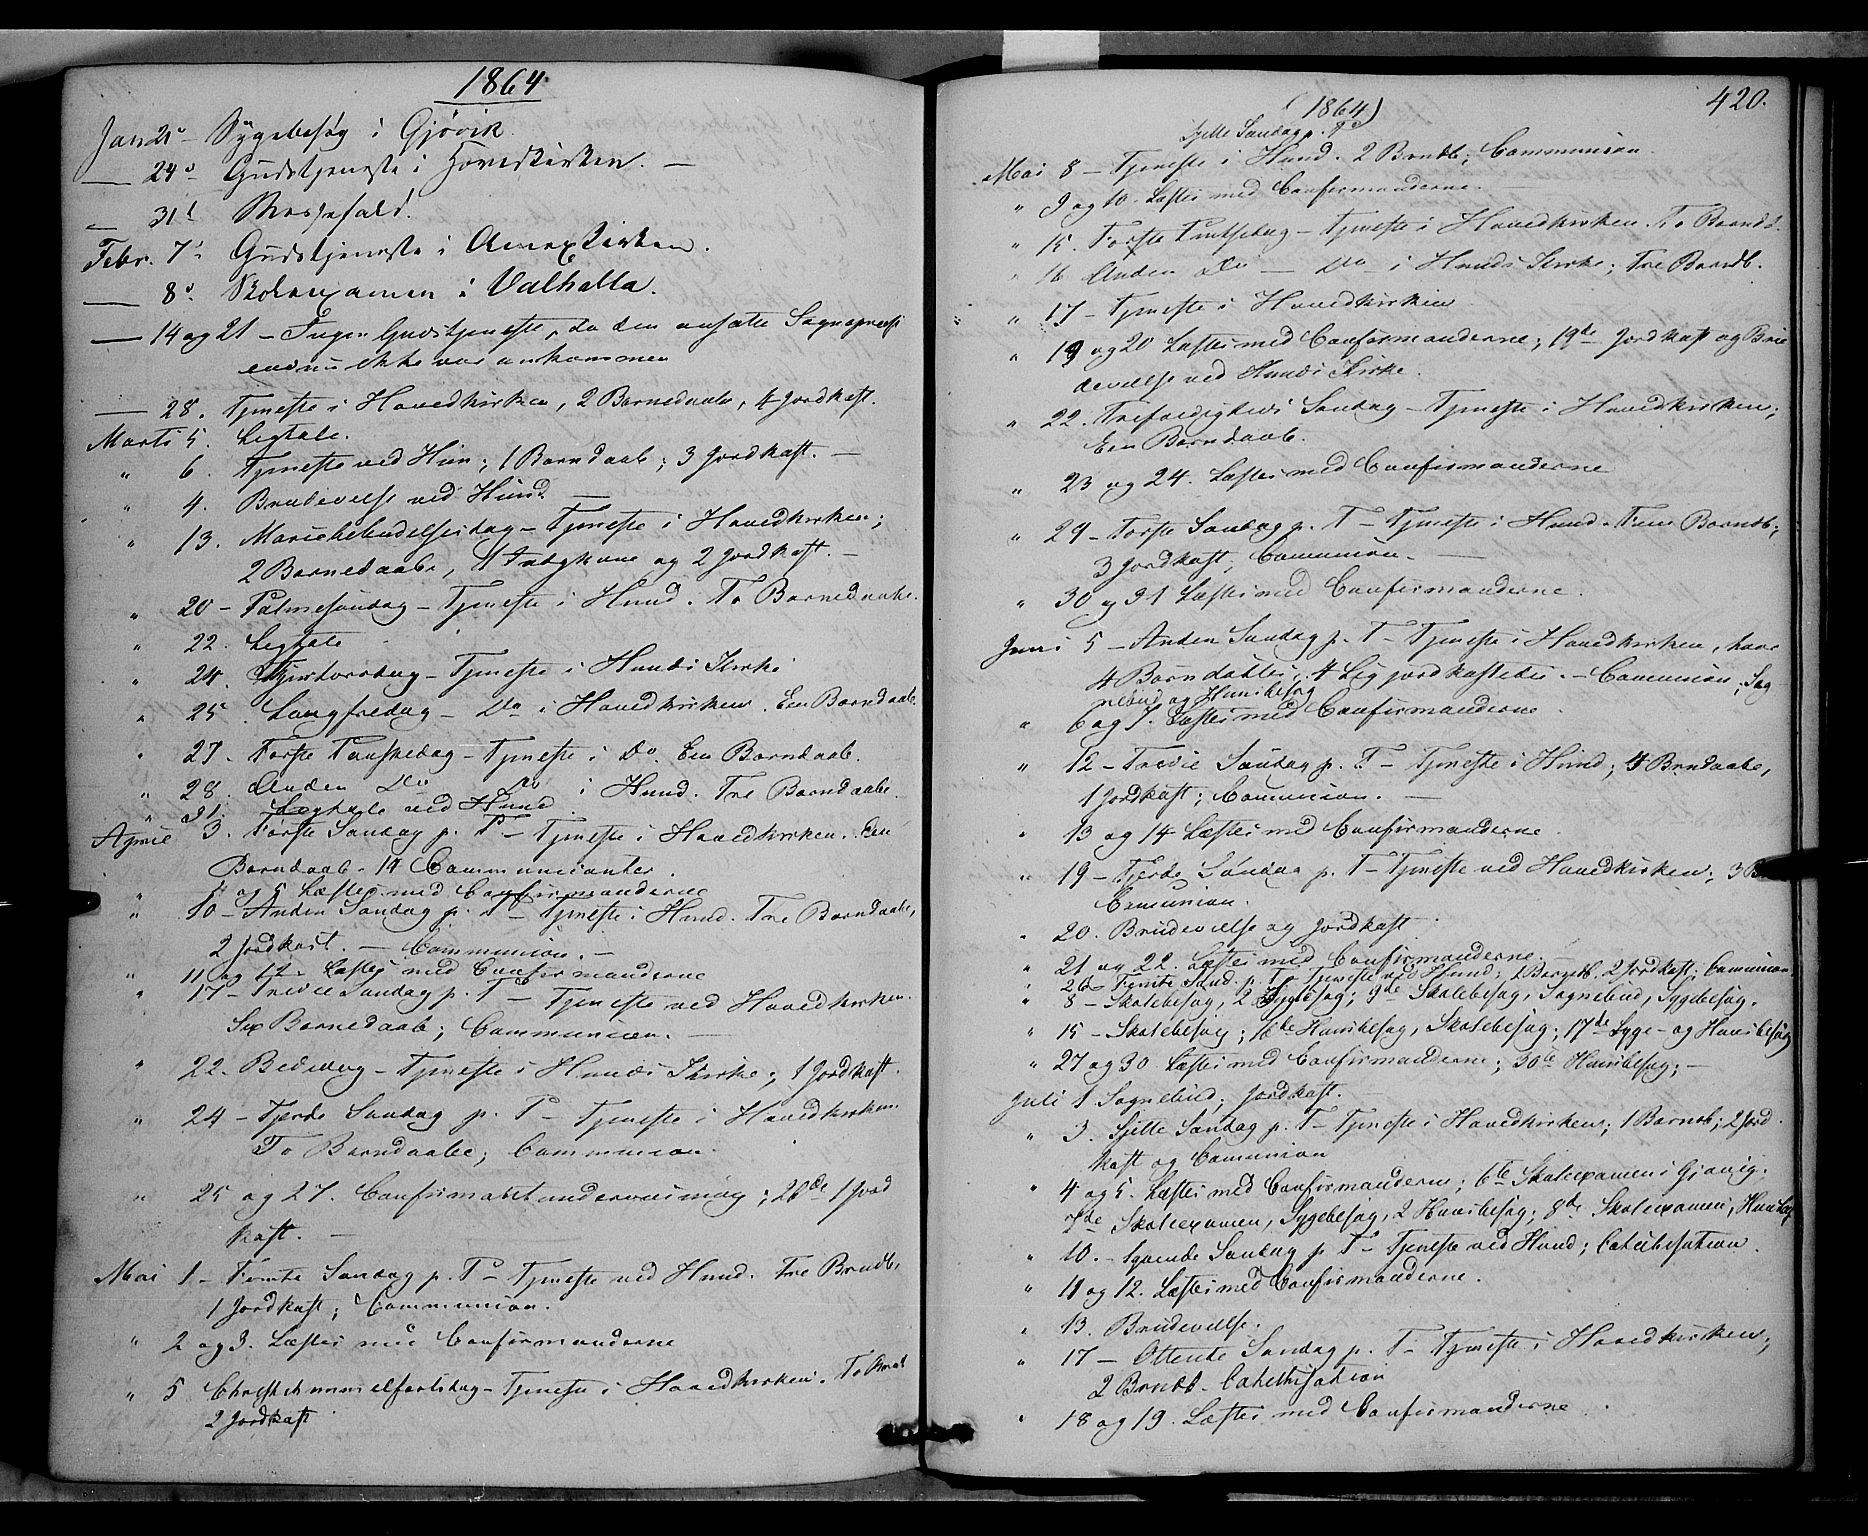 1864.
Jan 21de Sygebesøg i Gjøvik.
— 24de Gudstjeneste i Hovedkirken. —
— 31te Messefald.
Febr. 7de Gudstjeneste i Annexkirken.
— 8de Skoleexamen i Valhalla.
— 14 og 21 – Ingen Gudstjeneste, da den ansatte Sognepræst
endnu ikke var ankommen
— 28. Tjeneste i Hovedkirken, 2 Barnedaabe, 4 Jordkast.
Marts 5. Ligtale.
" 6. Tjeneste ved Hun; 1 Barndaab; 3 Jordkast. —
" 4. Brudevielse ved Hund —
" 13. Mariæbebudelsesdag – Tjeneste i Hovedkirken;
2 Barnedaabe, 1 og 2 Jordkast. —
" 20 – Palmesøndag – Tjeneste i Hund. To Barnedaabe.
" 22. Ligtale
" 24. Skjærtorsdag – Tjeneste i Hunds Kirke
" 25. Langfredag – Do i Hovedkirken. Een Barndaab.
" 27. Første Paaskedag – Tjeneste i Do. Een Barndaab.
" 28. Anden Do Do i Hund. Tre Barndaabe.
" 31. Ligtale ved Hund
April 3. Første Søndag p. P – Tjeneste i Hovedkirken. Een
Barndaab. 14 Communicanter.
" 4 og 5 Læstes med Confirmanderne
" 10 – Anden Søndag p. P – Tjeneste i Hund. Tre Barndaabe,
2 Jordkast. — Communion. —
" 11 og 12 – Læstes med Confirmanderne
" 17 – Tredie Søndag p. P – Tjeneste ved Hovedkirken.
Sex Barnedaab; Communion. —
" 22. Bededag – Tjeneste i Hunds Kirke; 1 Jordkast.
" 24 – Fjerde Søndag p. P – Tjeneste i Hovedkirken
To Barndaabe; Communion.
" 25 og 27. Confirmationsundervisning; 26de 1 Jord
kast. —
Mai 1 – Femte Søndag p. P – Tjeneste ved Hund. Tre Brndb,
1 Jordkast; Communion.
" 2 og 3. Læstes med Confirmanderne
" 5 Christi Himmelfartsdag – Tjeneste i Hovedkirken. To
2 Jordkast
420.
(1864)
Sjette Søndag p. P
Mai 8 – Tjeneste i Hund. 2 Barndb; Communion.
" 9 og 10. Læstes med Confirmanderne. —
" 15. Første Pintsedag – Tjeneste i Hovedkirken. To Barndb.
" 16 Anden Do — Do i Hunds Kirke; Tre Barndb.
" 17 – Tjeneste i Hovedkirken
" 19 og 20 Læstes med Confirmanderne; 19de Jordkast og Bru
devielse ved Hunds Kirke.
" 22. Trefoldigheds Søndag – Tjeneste i Hovedkirken;
Een Barndaab.
" 23 og 24. Læstes med Confirmanderne
" 29 – Første Søndag p. T – Tjeneste i Hund. Fem Barndb;
3 Jordkast, Communion. —
" 30 og 31 Læstes med Confirmanderne.
Juni 5 – Anden Søndag p. T – Tjeneste i Hovedkirken, hvor
4 Barn døbtes; 4 Lig jordkastedes. – Communion; Sog
nebud og Huusbesøg
" 6 og 7. Læstes med Confirmanderne
" 12 – Tredie Søndag p. T – Tjeneste i Hund; 4 Brndaabe,
1 Jordkast; Communion. —
" 13 og 14 Læstes med Confirmanderne
" 19 – Fjerde Søndag p. T – Tjeneste ved Hovedkirken; 3
Communion.
" 20. Brudevielse og Jordkast
" 21 og 22. Læstes med Confirmanderne. —
" 26 – Femte Sønd. p. T – Tjeneste ved Hund; 1 Barndb, 2 Jordkast; Communion.
" 8 – Skolebesøg, 2 Sygebesøg; 9de Skolebesøg, Sognebud, Sygebesøg.
" 15 – Skolebesøg; 16de Huusbesøg, Skolebesøg; 17de Syge- og Huusbesøg
" 27 og 30 Læstes med Confirmanderne; 30te Huusbesøg; —
Juli 1 Sognebud; Jordkast. —
" 3. Sjette Søndag p. T – Tjeneste i Hovedkirken; 1 Barndb; 2 Jord
kast og Communion
" 4 og 5. Læstes med Confirmanderne; 6te Skoleexamen i Gjøvig.
7de Skoleexamen, Sygebesøg, 2 Huusbesøg; 8de Skoleexamen,
" 10. – Syvende Søndag p. T – Tjeneste ved Hund; Catechisation.
" 11 og 12. Læstes med Confirmanderne.
" 13. Brudevielse.
" 17 – Ottende Søndag p. T – Tjeneste i Hovedkirken;
2 Brndb. Catechisation
" 18 og 19. Læstes med Confirmanderne